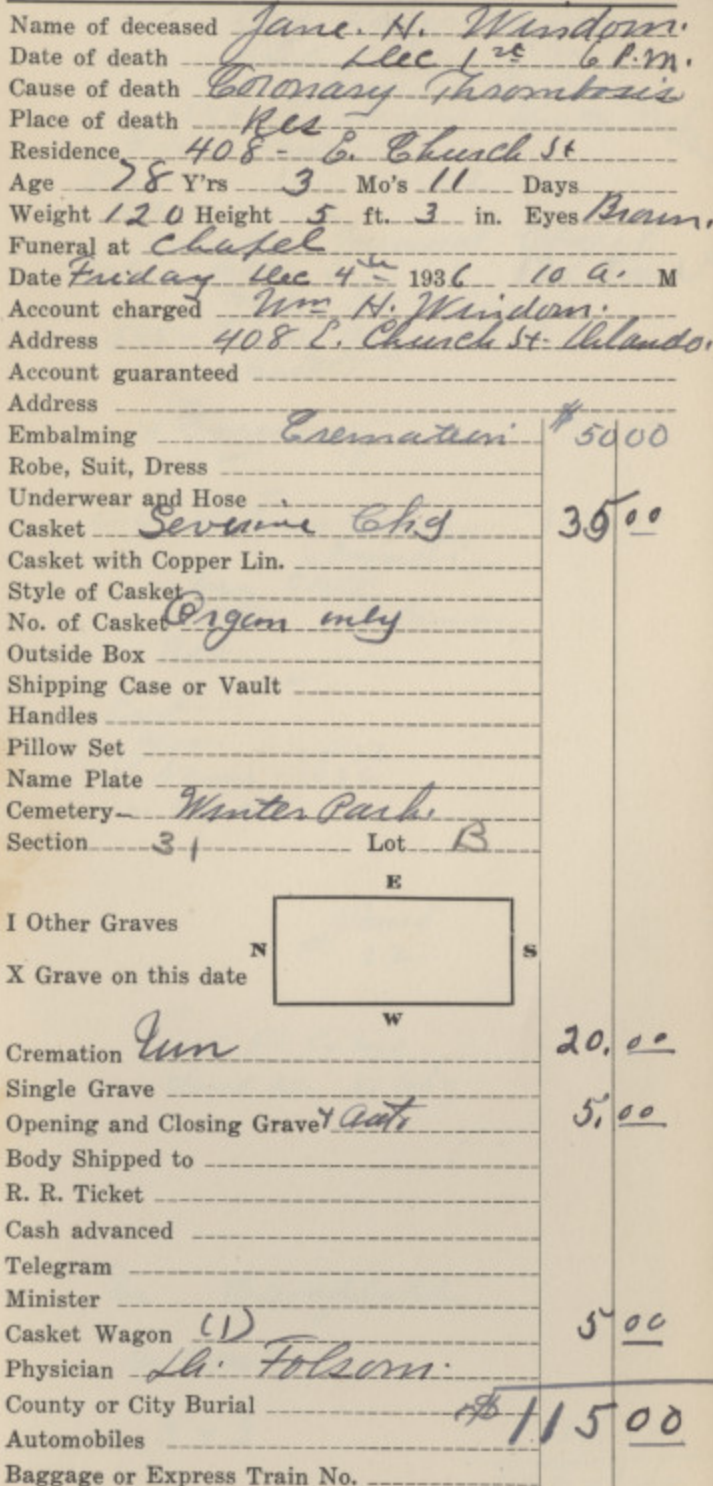 Name of deceased Jane. H. Windom.
Date of death Dec 1st 6 P.M.
Cause of death Coronary Thrombosis
Place of death Res
Residence 408 - E. Church St
Age 78 Y'rs 3 Mo's 11 Days
Weight 120 Height 5 ft. 3 in. Eyes Brown.
Funeral at Chapel
Date Friday Dec 4th 1936 10 a. M
Account charged Wm H. Windom.
Address 408 E. Church St. Orlando.
Account guaranteed
Address
Embalming Cremation $ 50 00
Robe, Suit, Dress
Underwear and Hose
Casket Service Chg 35 00
Casket with Copper Lin.
Style of Casket
No. of Casket Organ only
Outside Box
Shipping Case or Vault
Handles
Pillow Set
Name Plate
Cemetery Winter Park.
Section 31 Lot B
E
I Other Graves
N S
X Grave on this date
W
Cremation Urn 20. 00
Single Grave
Opening and Closing Grave & Auto 5. 00
Body Shipped to
R. R. Ticket
Cash advanced
Telegram
Minister
Casket Wagon (1) 5 00
Physician Dr. Folsom.
County or City Burial $ 115 00
Automobiles
Baggage or Express Train No.